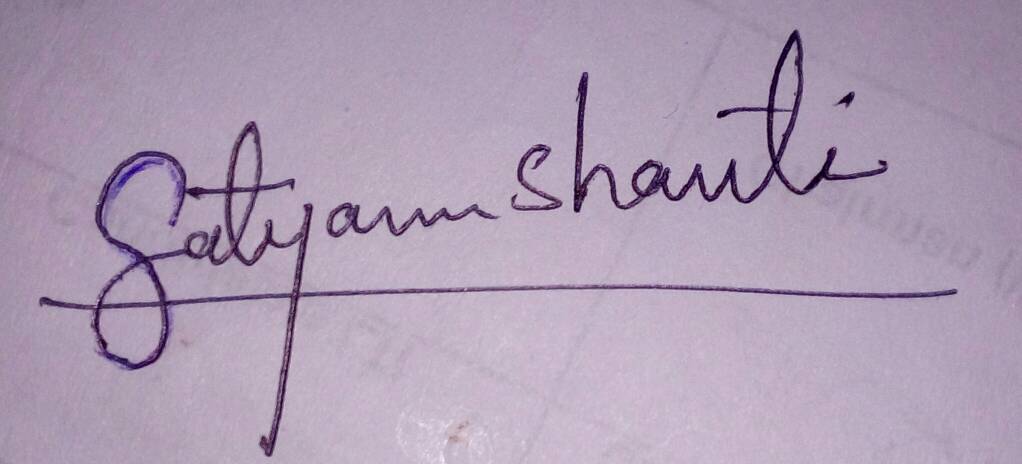 Satyam Shanti